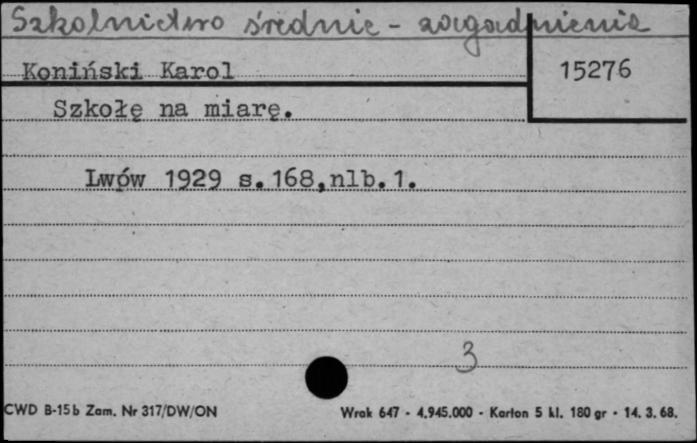 Szkolnictwo średnie - zagadnienia
Koniński Karol
15276
Szkołę na miarę.
Lwów 1929 s.168,nlb.1.
3
CWD B-15b Zam. Nr 317/DW/ON
Wrak 647 - 4.945.000 - Karton 5 kl. 180 gr - 14. 3. 68.